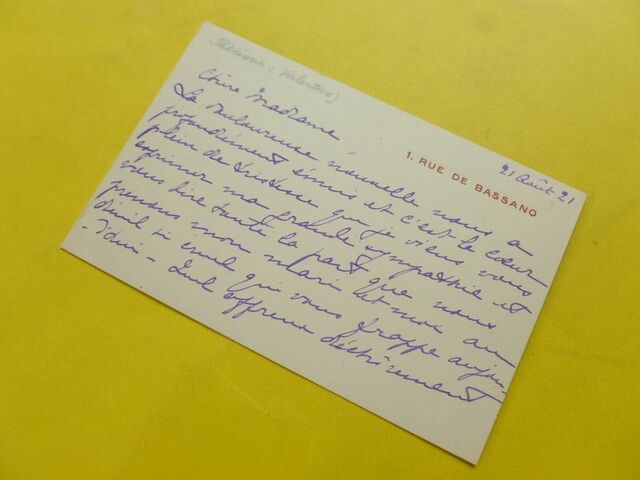 (Valentine)
1. RUE DE BASSANO
21 Août 21
Chère Madame
La douloureuse nouvelle nous a
profondément émus et c'est le cœur
plein de tristesse que je viens vous
exprimer ma grande sympathie et
vous dire toute la part que nous
prenons mon mari et moi au
deuil si cruel qui vous frappe aujour-
-d'hui - Quel affreux déchirement